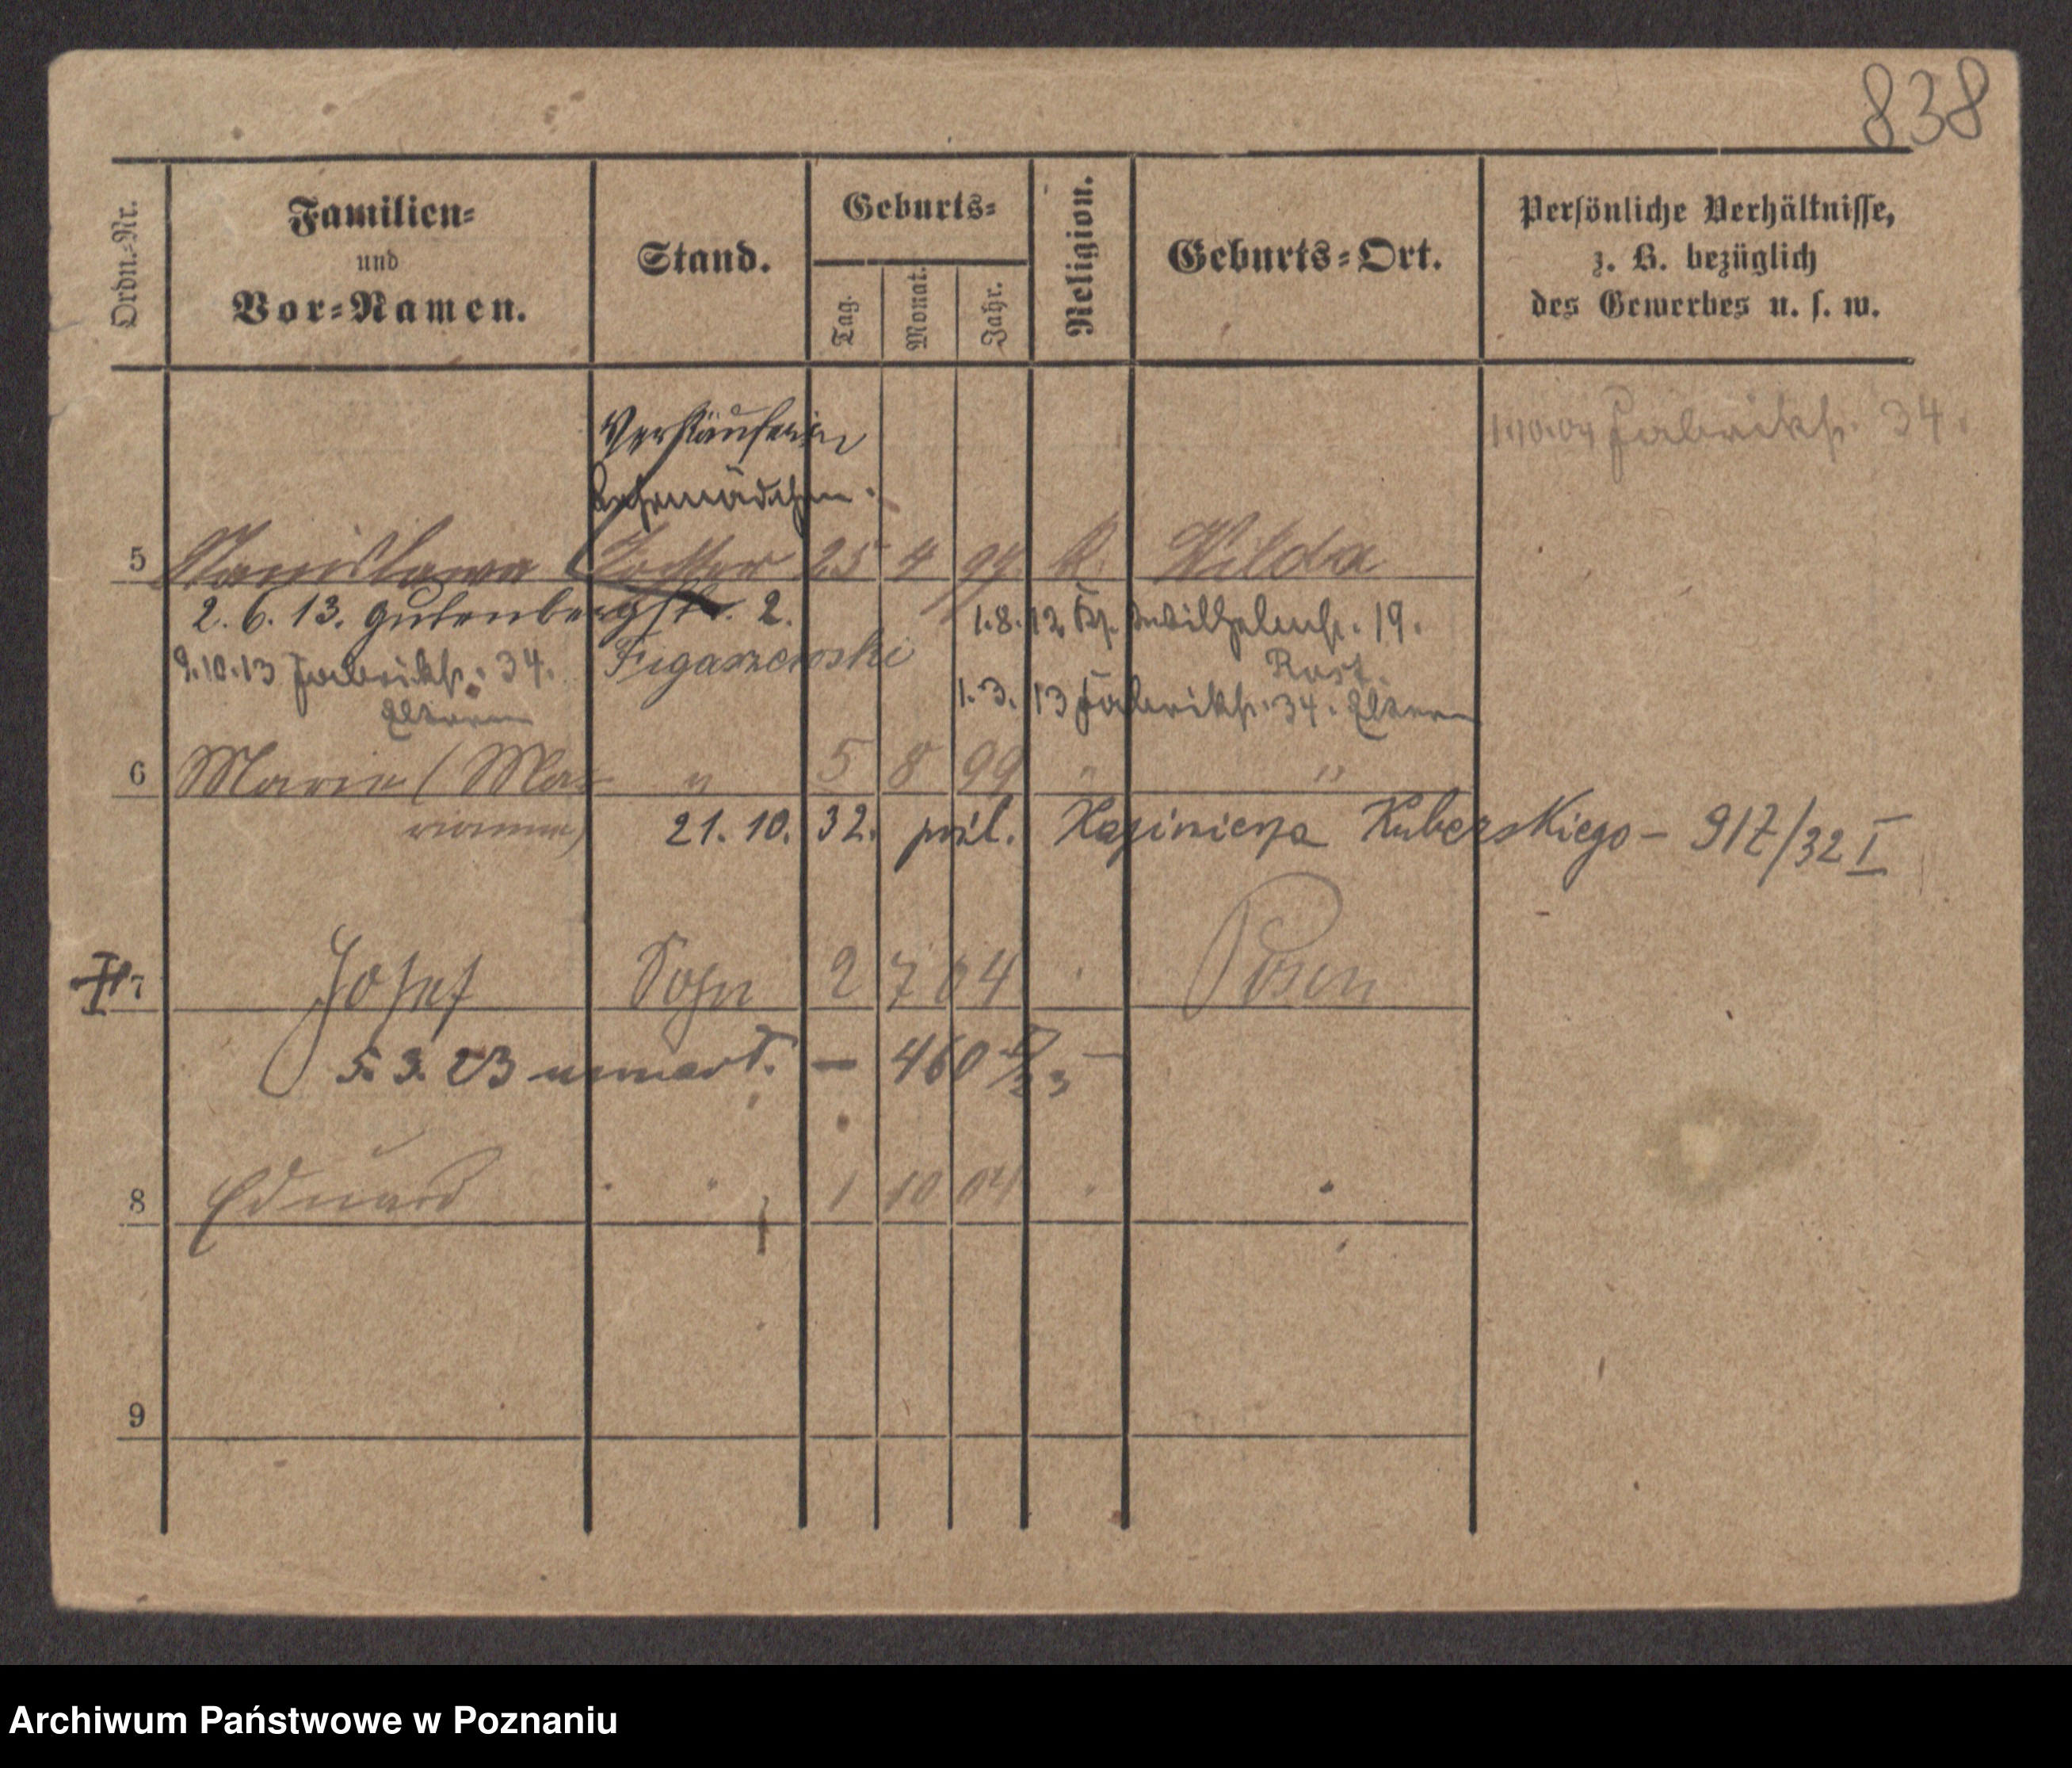 838
Ordn.-Nr.
Familien-
und
Vor-Namen.
Stand.
Geburts-
Tag.
Monat.
Jahr.
Religion.
Geburts-Ort.
Persönliche Verhältnisse,
z. B. bezüglich
des Gewerbes u. s. w.
1.10.04 Fabrikstr. 34.
Verkäuferin
Lehrmädchen.
5 Stanislawa Tochter 25 4 97 k. Wilda
2. 6. 13. Gutenbergstr. 2. 1.8.12. Kr. Wilhelmstr. 19.
Figaszewski Rost.
9.10.13 Fabrikstr. 34. 1.3.13 Fabrikstr. 34. Eltern
Eltern
6 Marie (Ma- " 5 8 99 " "
rianna) 21. 10. 32. pośl. Kazimierza Kuberskiego - 917/32 I
7 Josef Sohn 2 7 04 Posen
5. 3. 23 umarł. — 460 /23 —
8 Eduard " " 1 10 04 "
9
Archiwum Państwowe w Poznaniu